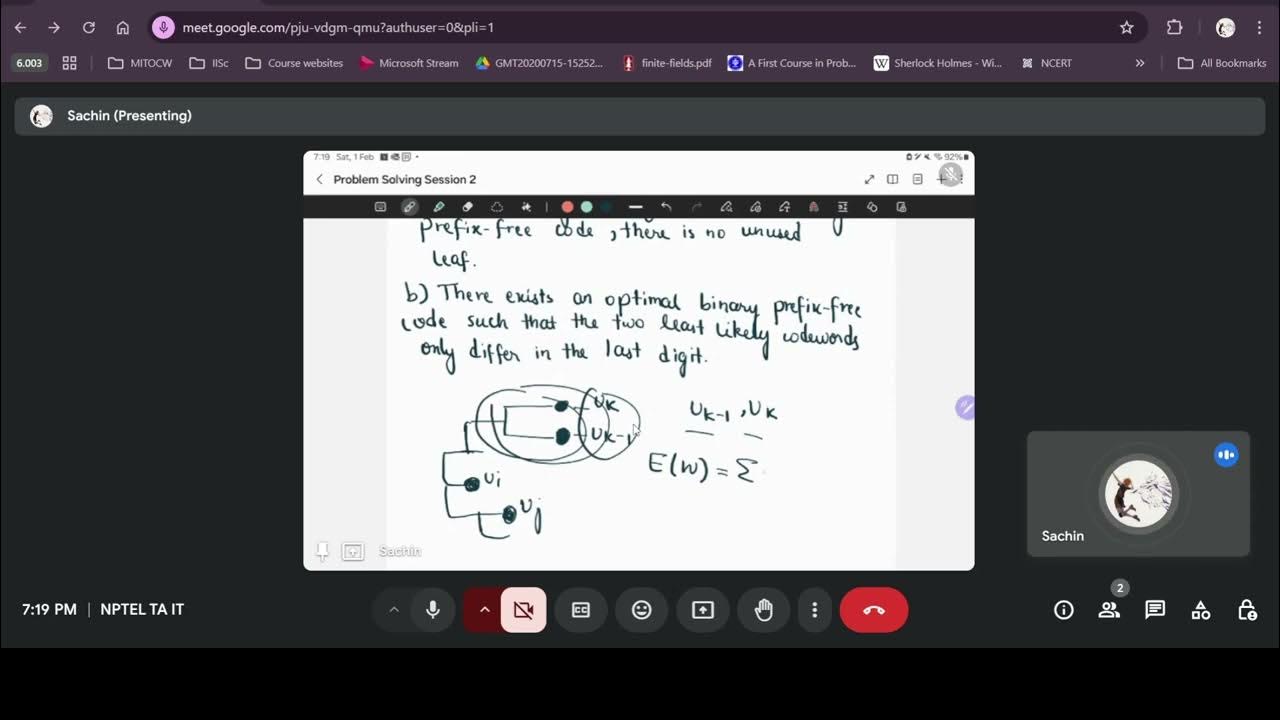 meet.google.com/pju-vdgm-qmu?authuser=0&pli=1
6.003 MITOCW IISc Course websites Microsoft Stream GMT20200715-15252... finite-fields.pdf A First Course in Prob... Sherlock Holmes - Wi... NCERT » All Bookmarks
Sachin (Presenting)
7:19 Sat, 1 Feb 92%
Problem Solving Session 2
prefix-free code, there is no unused
leaf.
b) There exists an optimal binary prefix-free
code such that the two least likely codewords
only differ in the last digit.
UK
UK-1
UK-1, UK
E(W) = Σ
Ui
Uj
Sachin
Sachin
7:19 PM | NPTEL TA IT
2